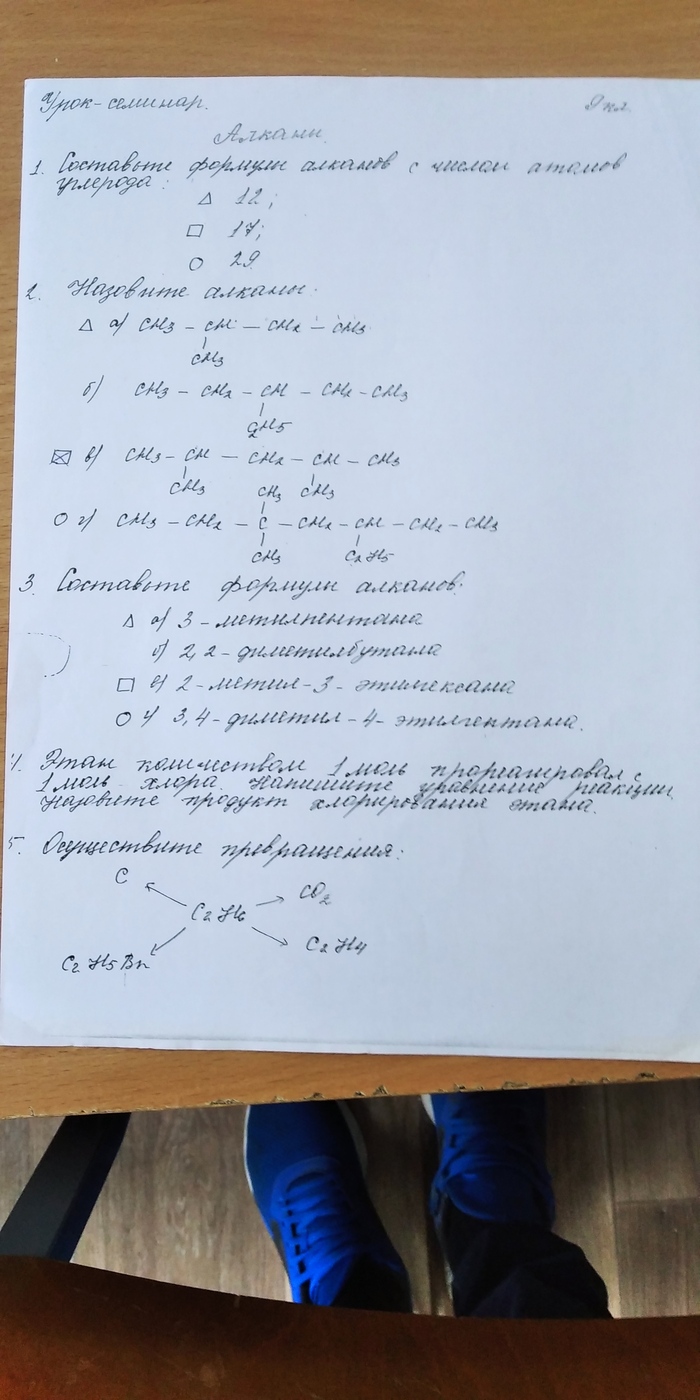 Урок-семинар. 9 кл.
Алканы.
1. Составьте формулы алканов с числом атомов
углерода:
△ 12;
□ 17;
○ 29.
2. Назовите алканы:
△ а) CH3 – CH – CH2 – CH3
CH3
б) CH3 – CH2 – CH – CH2 – CH3
C2H5
в) CH3 – CH – CH2 – CH – CH3
CH3 CH3
CH3
○ г) CH3 – CH2 – C – CH2 – CH – CH2 – CH3
CH3 C2H5
3. Составьте формулы алканов:
△ а) 3-метилпентана
б) 2,2-диметилбутана
□ в) 2-метил-3-этилгексана
○ г) 3,4-диметил-4-этилгептана.
4. Этан количеством 1 моль прореагировал с
1 моль хлора. Напишите уравнение реакции.
Назовите продукт хлорирования этана.
5. Осуществите превращения:
C CO2
C2H6
C2H5Br C2H4